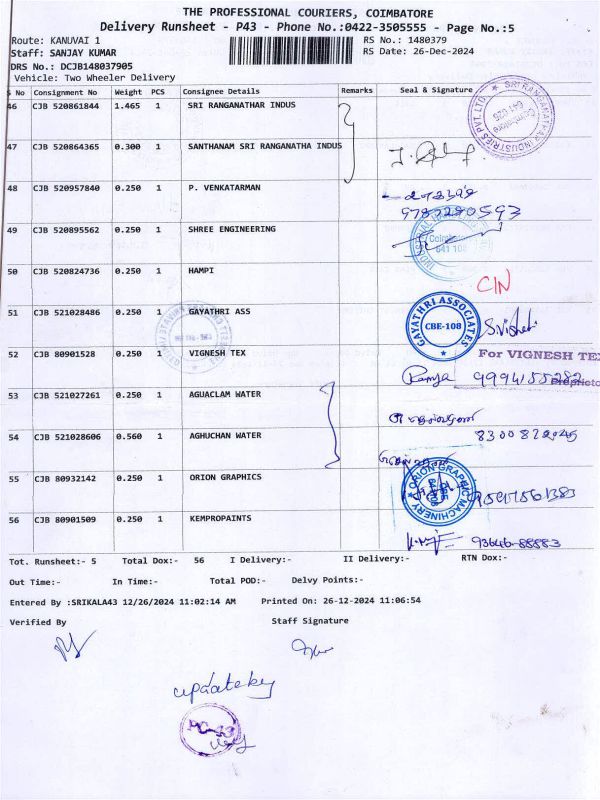 THE PROFESSIONAL COURIERS, COIMBATORE
Delivery Runsheet - P43 - Phone No.:0422-3505555 - Page No.:5
Route: KANUVAI 1 RS No.: 1480379
Staff: SANJAY KUMAR RS Date: 26-Dec-2024
DRS No.: DCJB148037905
Vehicle: Two Wheeler Delivery
S No Consignment No Weight PCS Consignee Details Remarks Seal & Signature
46 CJB 520861844 1.465 1 SRI RANGANATHAR INDUS
SRI RANGANATHAR INDUSTRIES PVT. LTD. Coimbatore 641 025
47 CJB 520864365 0.300 1 SANTHANAM SRI RANGANATHA INDUS
48 CJB 520957840 0.250 1 P. VENKATARMAN
9787280593
49 CJB 520895562 0.250 1 SHREE ENGINEERING
Coimbatore 641 108
50 CJB 520824736 0.250 1 HAMPI
CIN
51 CJB 521028486 0.250 1 GAYATHRI ASS
GAYATHRI ASSOCIATES CBE-108
52 CJB 80901528 0.250 1 VIGNESH TEX
For VIGNESH TEX
Ramya 9994155282
53 CJB 521027261 0.250 1 AGUACLAM WATER
54 CJB 521028606 0.560 1 AGHUCHAN WATER
55 CJB 80932142 0.250 1 ORION GRAPHICS
ORION GRAPHIC MACHINERY
56 CJB 80901509 0.250 1 KEMPROPAINTS
93646-88883
Tot. Runsheet:- 5 Total Dox:- 56 I Delivery:- II Delivery:- RTN Dox:-
Out Time:- In Time:- Total POD:- Delvy Points:-
Entered By :SRIKALA43 12/26/2024 11:02:14 AM Printed On: 26-12-2024 11:06:54
Verified By Staff Signature
PC-43